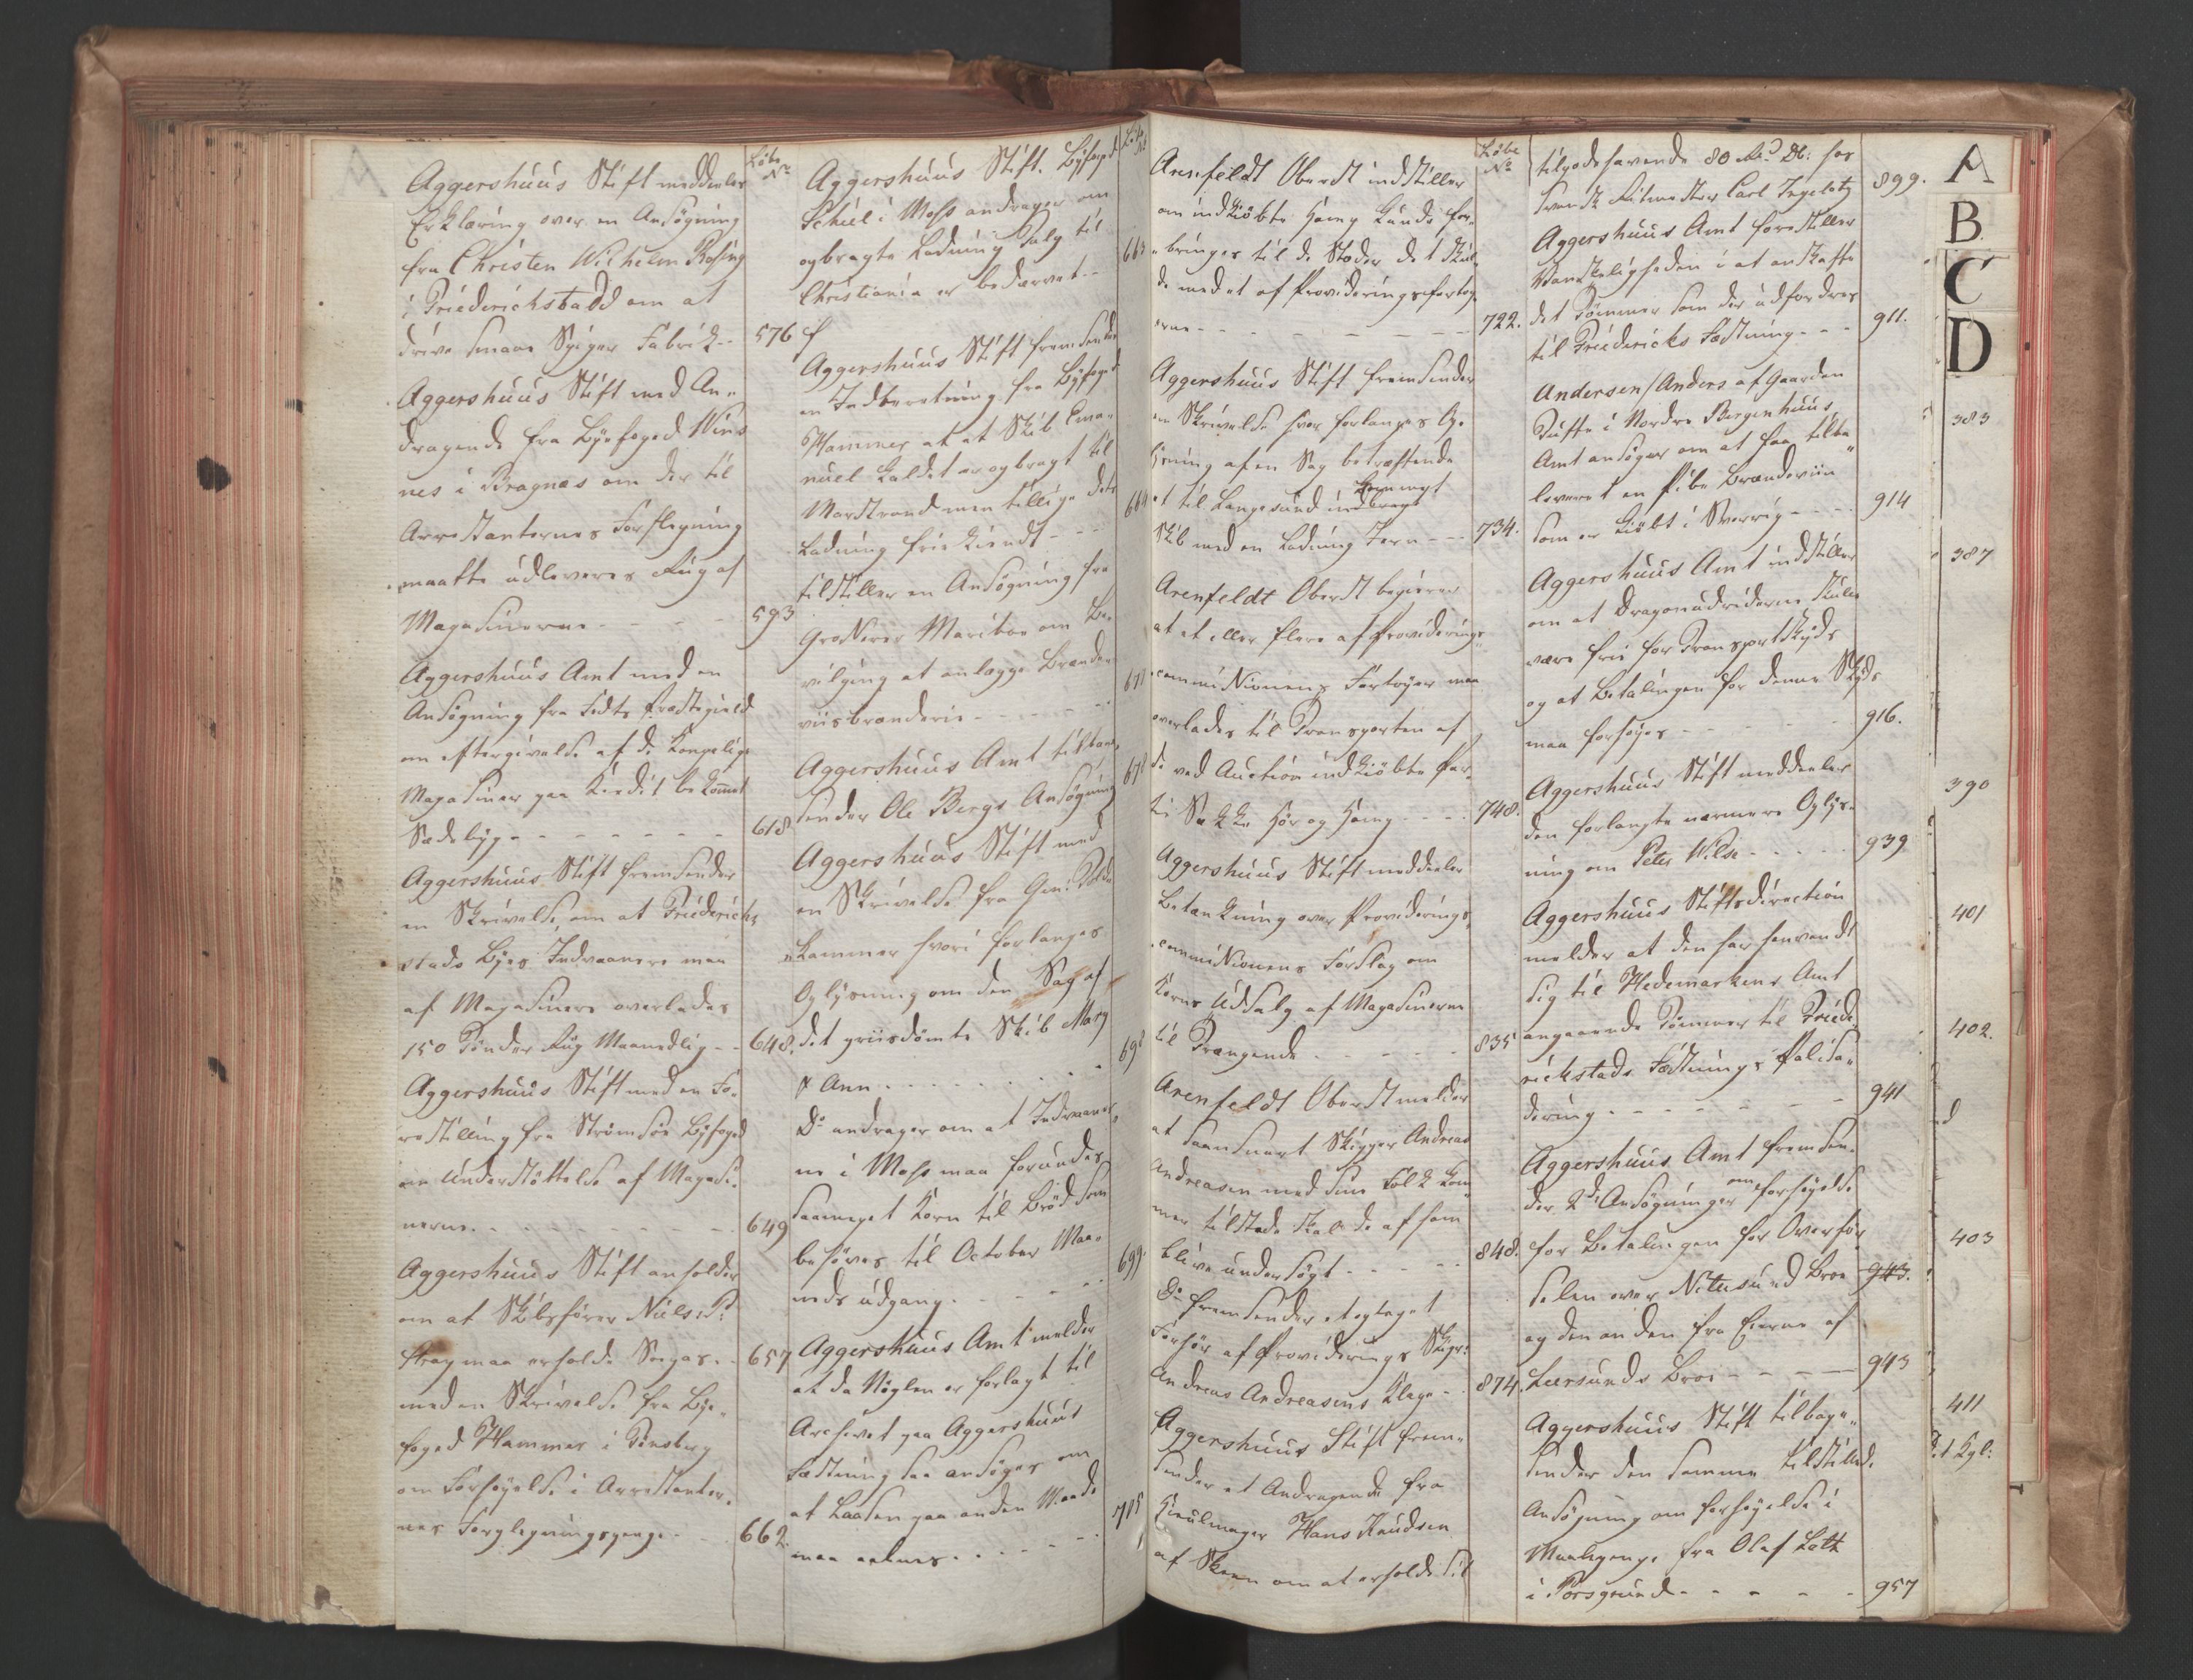 Løbe
No
Aggershuus Stift meddeeler
Erklæring over en Ansøgning
fra Christen Wilhelm Rosing
i Friederichstadd om at
drive smaae Spiger Fabrik -- 576
Aggershuus Stift med An„
dragende fra Byefoged Wins
nes i Bragnæs om der til
Arrestanternes Forflegning
maatte udleveres Rug af
Magasinerne - - - - 593
Aggershuus Amt med en
Ansøgning fra Præstegield
om eftergivelse af de Kongelige
Magasiner paa Credit bekommet
Sædebyg - - - - - - - 618
Aggershuus Stift fremsender
en Skrivelse, om at Friederich
stads Byes Indvaanere maa
af Magasinere overlades
150 Tønder Rug Maanedlig - - 648.
Aggershuus Stift med en Fo„
restilling fra Strømsøe Byfoged
om Understøttelse af Magasi„
nerne. - - - - - - - 649
Aggershuus Stift anholder
om at Skibsfører Niels
maa erholde - 657
med en Skrivelse fra Bye„
foged Hammer i Tønsberg
om Forhøyelse i Arrestanter„
nes Forplegningspenge - - 662.
Løbe
No
Aggershuus Stift. Byfoged
Schiel i Moss andrager om
opbragte Ladning Salg til
Christiania er bedærvet - - 663
Aggershuus Stift fremsender
en Indberetning fra Byfoged
Hammer at et Skib Ema„
nuel kaldet er opbragt til
Marstrand men tillige dets
Ladning frie kiendt - - - 664
tilstiller en Ansøgning fra
Grosserer Mariboe om Be„
vilging at anlægge Brænde„
viisbrænderie - - - - - - 671
Aggershuus Amt tilbage
sender Ole Bergs Ansøgning 678
Aggershuus Stift med
en Skrivelse fra Gen: Told
Kammer hvori forlanges
Oplysning om den Sag af
det priisdømte Skib Mary
& Ann. - - - - - - - 698
Do andrager om at Indvaaner„
ne i Moss maa forundes
saameget Korn til Brød som
behøves til October Maa„
neds udgang. - - - - 699.
Aggershuus Amt melder
at da Nøglen er forlagt til
Archivet paa Aggershuus
Fæstning saa ansøges om
at Laasen paa anden Maade
maa aabnes. - - - - - 715
Løbe
No
Arenfeldt Oberst indstiller
om indkiøbte Hamp kunde for„
bringes til de Støder det skul„
de med et af Provideringsfartøy
erne - - - - - - - - - 722.
Aggershuus Stift fremsender
en Skrivelse hvor forlanges Op„
lysning af en Sag betræffende
et til Langesund indbragt
Skib med en Ladning Jern - - - 734.
Arenfeldt Oberst begierer
at et eller flere af Providerings„
commissionens Fartøyer maa
overlades til Transporten af
de ved Auction indkiøbte Par„
ti Sække Hør og Hamp - - - - 748.
Aggershuus Stift meddeeler
Betænkning over Providerings
commissionens Forslag om
Korns Udsalg af Magasinerne
til Trængende - - - - - - 835
Arenfeldt Oberst melder
at saasnart Skipper Andreas
Andreasen med sine Folk kom„
mer tilstede skal de afhøm
blive undersøgt - - - - - 848.
Do fremsender et optaget
Forhør af Providerings Skipr:
Andreas Andreasens Klage - - 874.
Aggershuus Stift frem„
sender et Andragende fra
Hans Knudsen
af Skeen om at erholde sit
tilgodehavende 80 Rd Dc: hos
svensk Ritmester Carl 899.
Aggershuus Amt forestiller
Vanskeligheden i at anskaffe
det Tømmer som der udfordres
til Friederichs Fæstning - - - 911.
Andersen/Anders af Gaarden
Tuffte i Nordre Bergenhuus
Amt ansøger om at faae tilba„
leveret en Pibe Brændeviin
som er kiøbt i Sverrig - - - - 914
Aggershuus Amt indstiller
om at Dragonudrederne skulle
være frie for Transportskyds
og at Betalingen for denne Skyds
maa forhøyes - - - - - 916.
Aggershuus Stift meddeeler
den forlangte nærmere Oplys„
ning om Peter Wilse - - - - - 939
Aggershuus Stiftsdirection
melder at den har henvendt
sig til Hedemarkens Amt
angaaende Tømmer til Friede„
rickstads Fæstnings Palisa„
dering. - - - - - - - 941
Aggershuus Amt fremsen„
der 2de Ansøgninger om forhøyelse
for Betalingen for Overfør„
selen over Nitesund Broe 943.
og den anden fra Eierne af
Leersunds Broe - - - - - 943
Aggershuus Stift tilbage„
sender den samme tilstillede
Ansøgning om forhøyelse i
Maalepenge fra Olaf Lott
i Porsgrund - - - - - - 957
A
B
C
D
383
387
390
401
402.
403
411